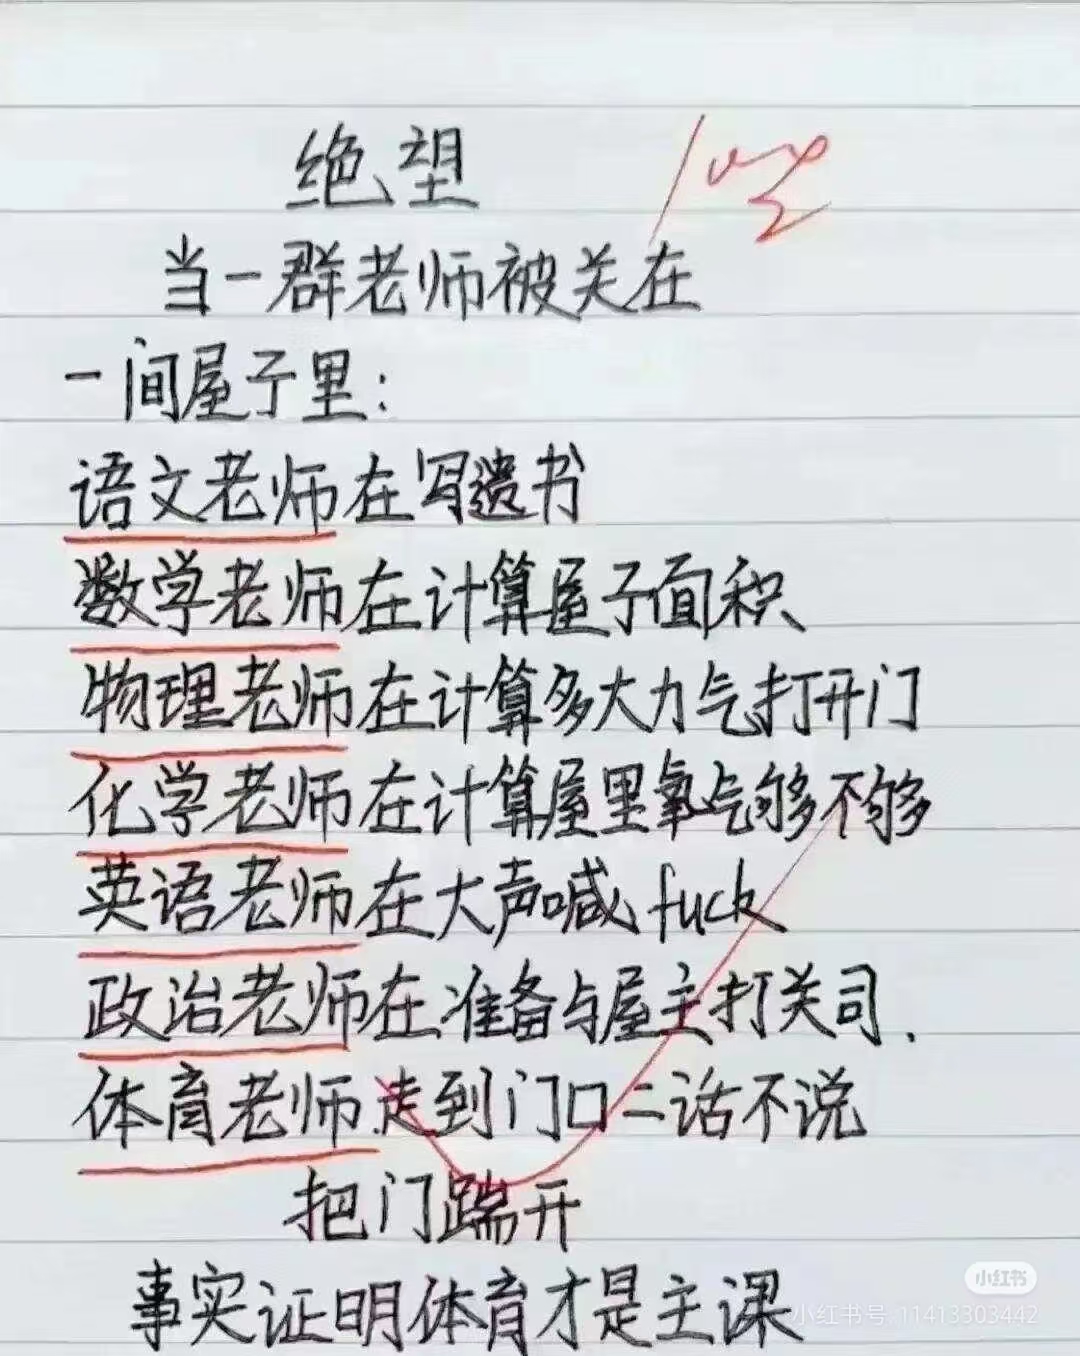 绝望
当一群老师被关在
一间屋子里：
语文老师在写遗书
数学老师在计算屋子面积
物理老师在计算多大力气打开门
化学老师在计算屋里氧气够不够
英语老师在大声喊fuck
政治老师在准备与屋主打关司.
体育老师走到门口二话不说
把门踹开
事实证明体育才是主课
小红书
小红书号: 11413303442